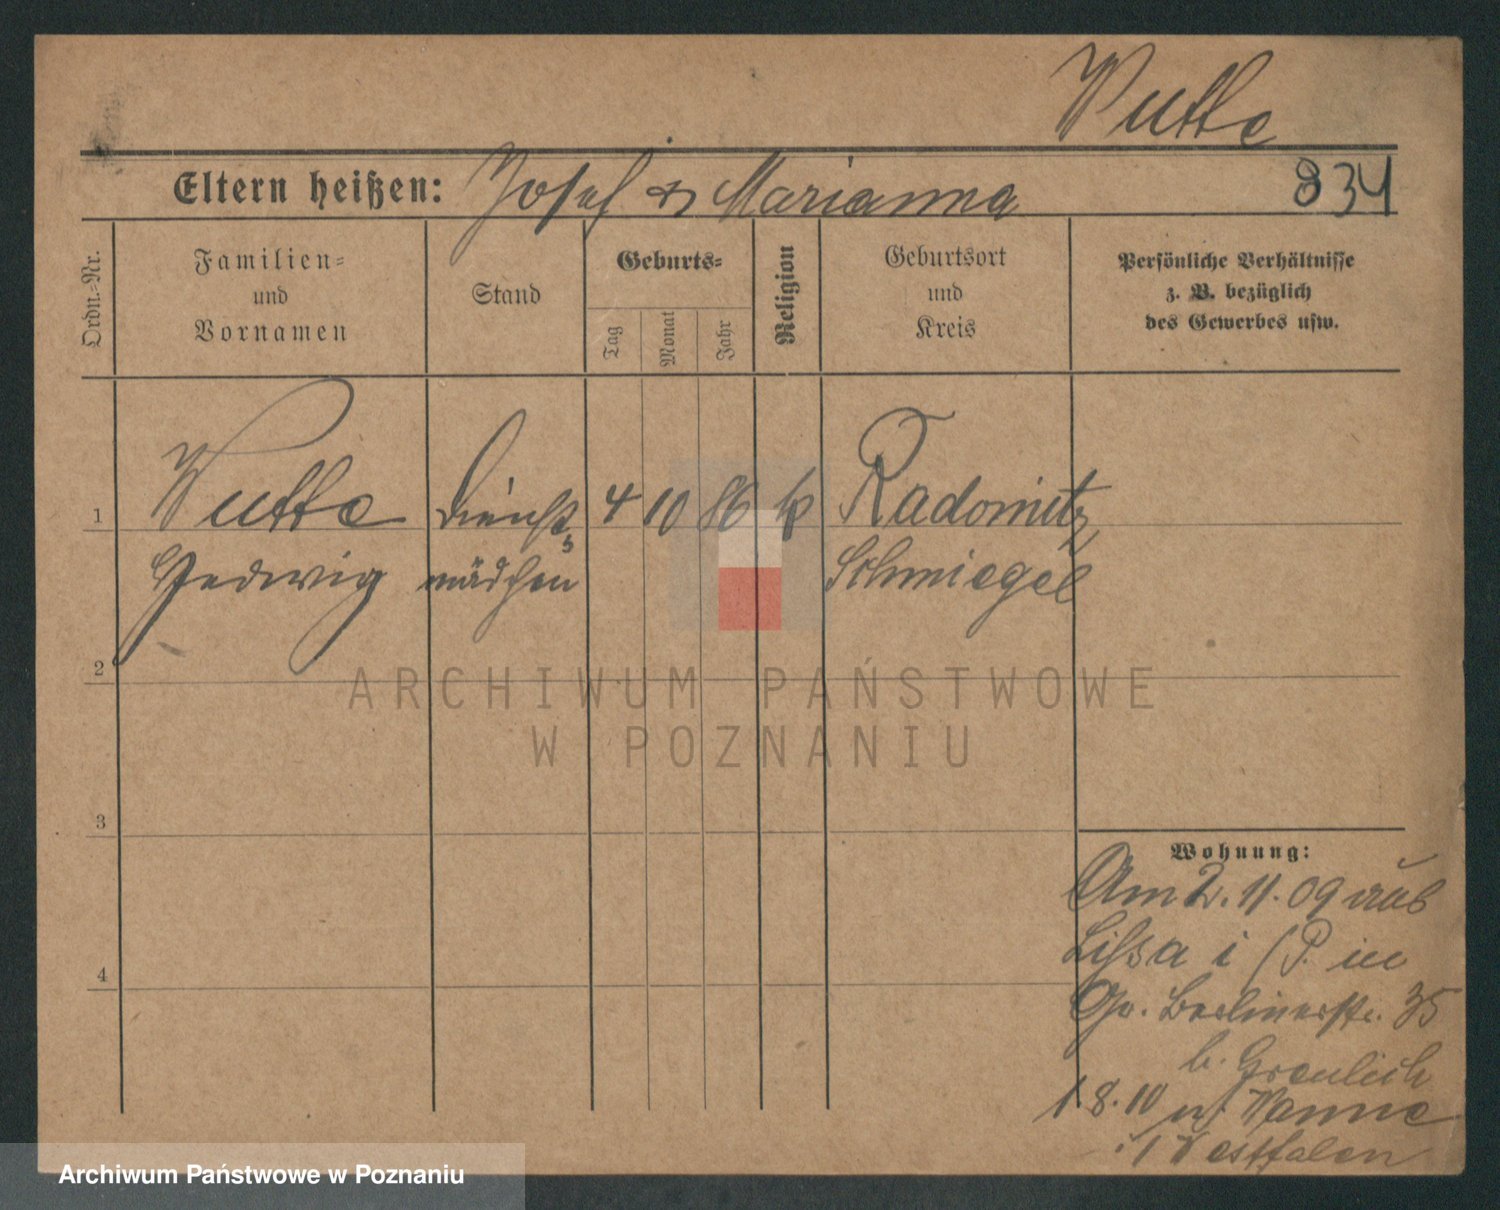 Wutke
Eltern heißen: Josef & Marianna 834
Ordn.-Nr.
Familien-
und
Vornamen
Stand
Geburts-
Tag
Monat
Jahr
Religion
Geburtsort
und
Kreis
Persönliche Verhältnisse
z. B. bezüglich
des Gewerbes usw.
1 Wutke Dienst 4 10 86 k Radomitz
Hedwig mädchen Schmiegel
2
3
4
Wohnung:
Am 2. 11. 09 aus
Lissa i/P. in
Gr. Berlinerstr. 35
b. Greulich
1.8.10 n/. Wanne
i/Westfalen
ARCHIWUM PAŃSTWOWE
W POZNANIU
Archiwum Państwowe w Poznaniu